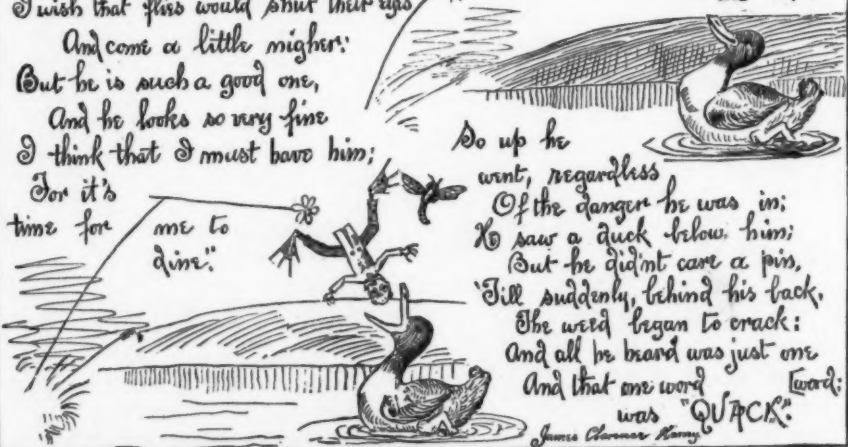 I wish that flies would shut their eyes
And come a little nigher:
But he is such a good one,
And he looks so very fine
I think that I must have him;
For it's
time for me to
dine."
So up he
went, regardless
Of the danger he was in;
He saw a duck below him;
But he did'nt care a pin,
'Till suddenly, behind his back,
The weed began to crack:
And all he heard was just one
And that one word [word;
was "QUACK".
James Clarence